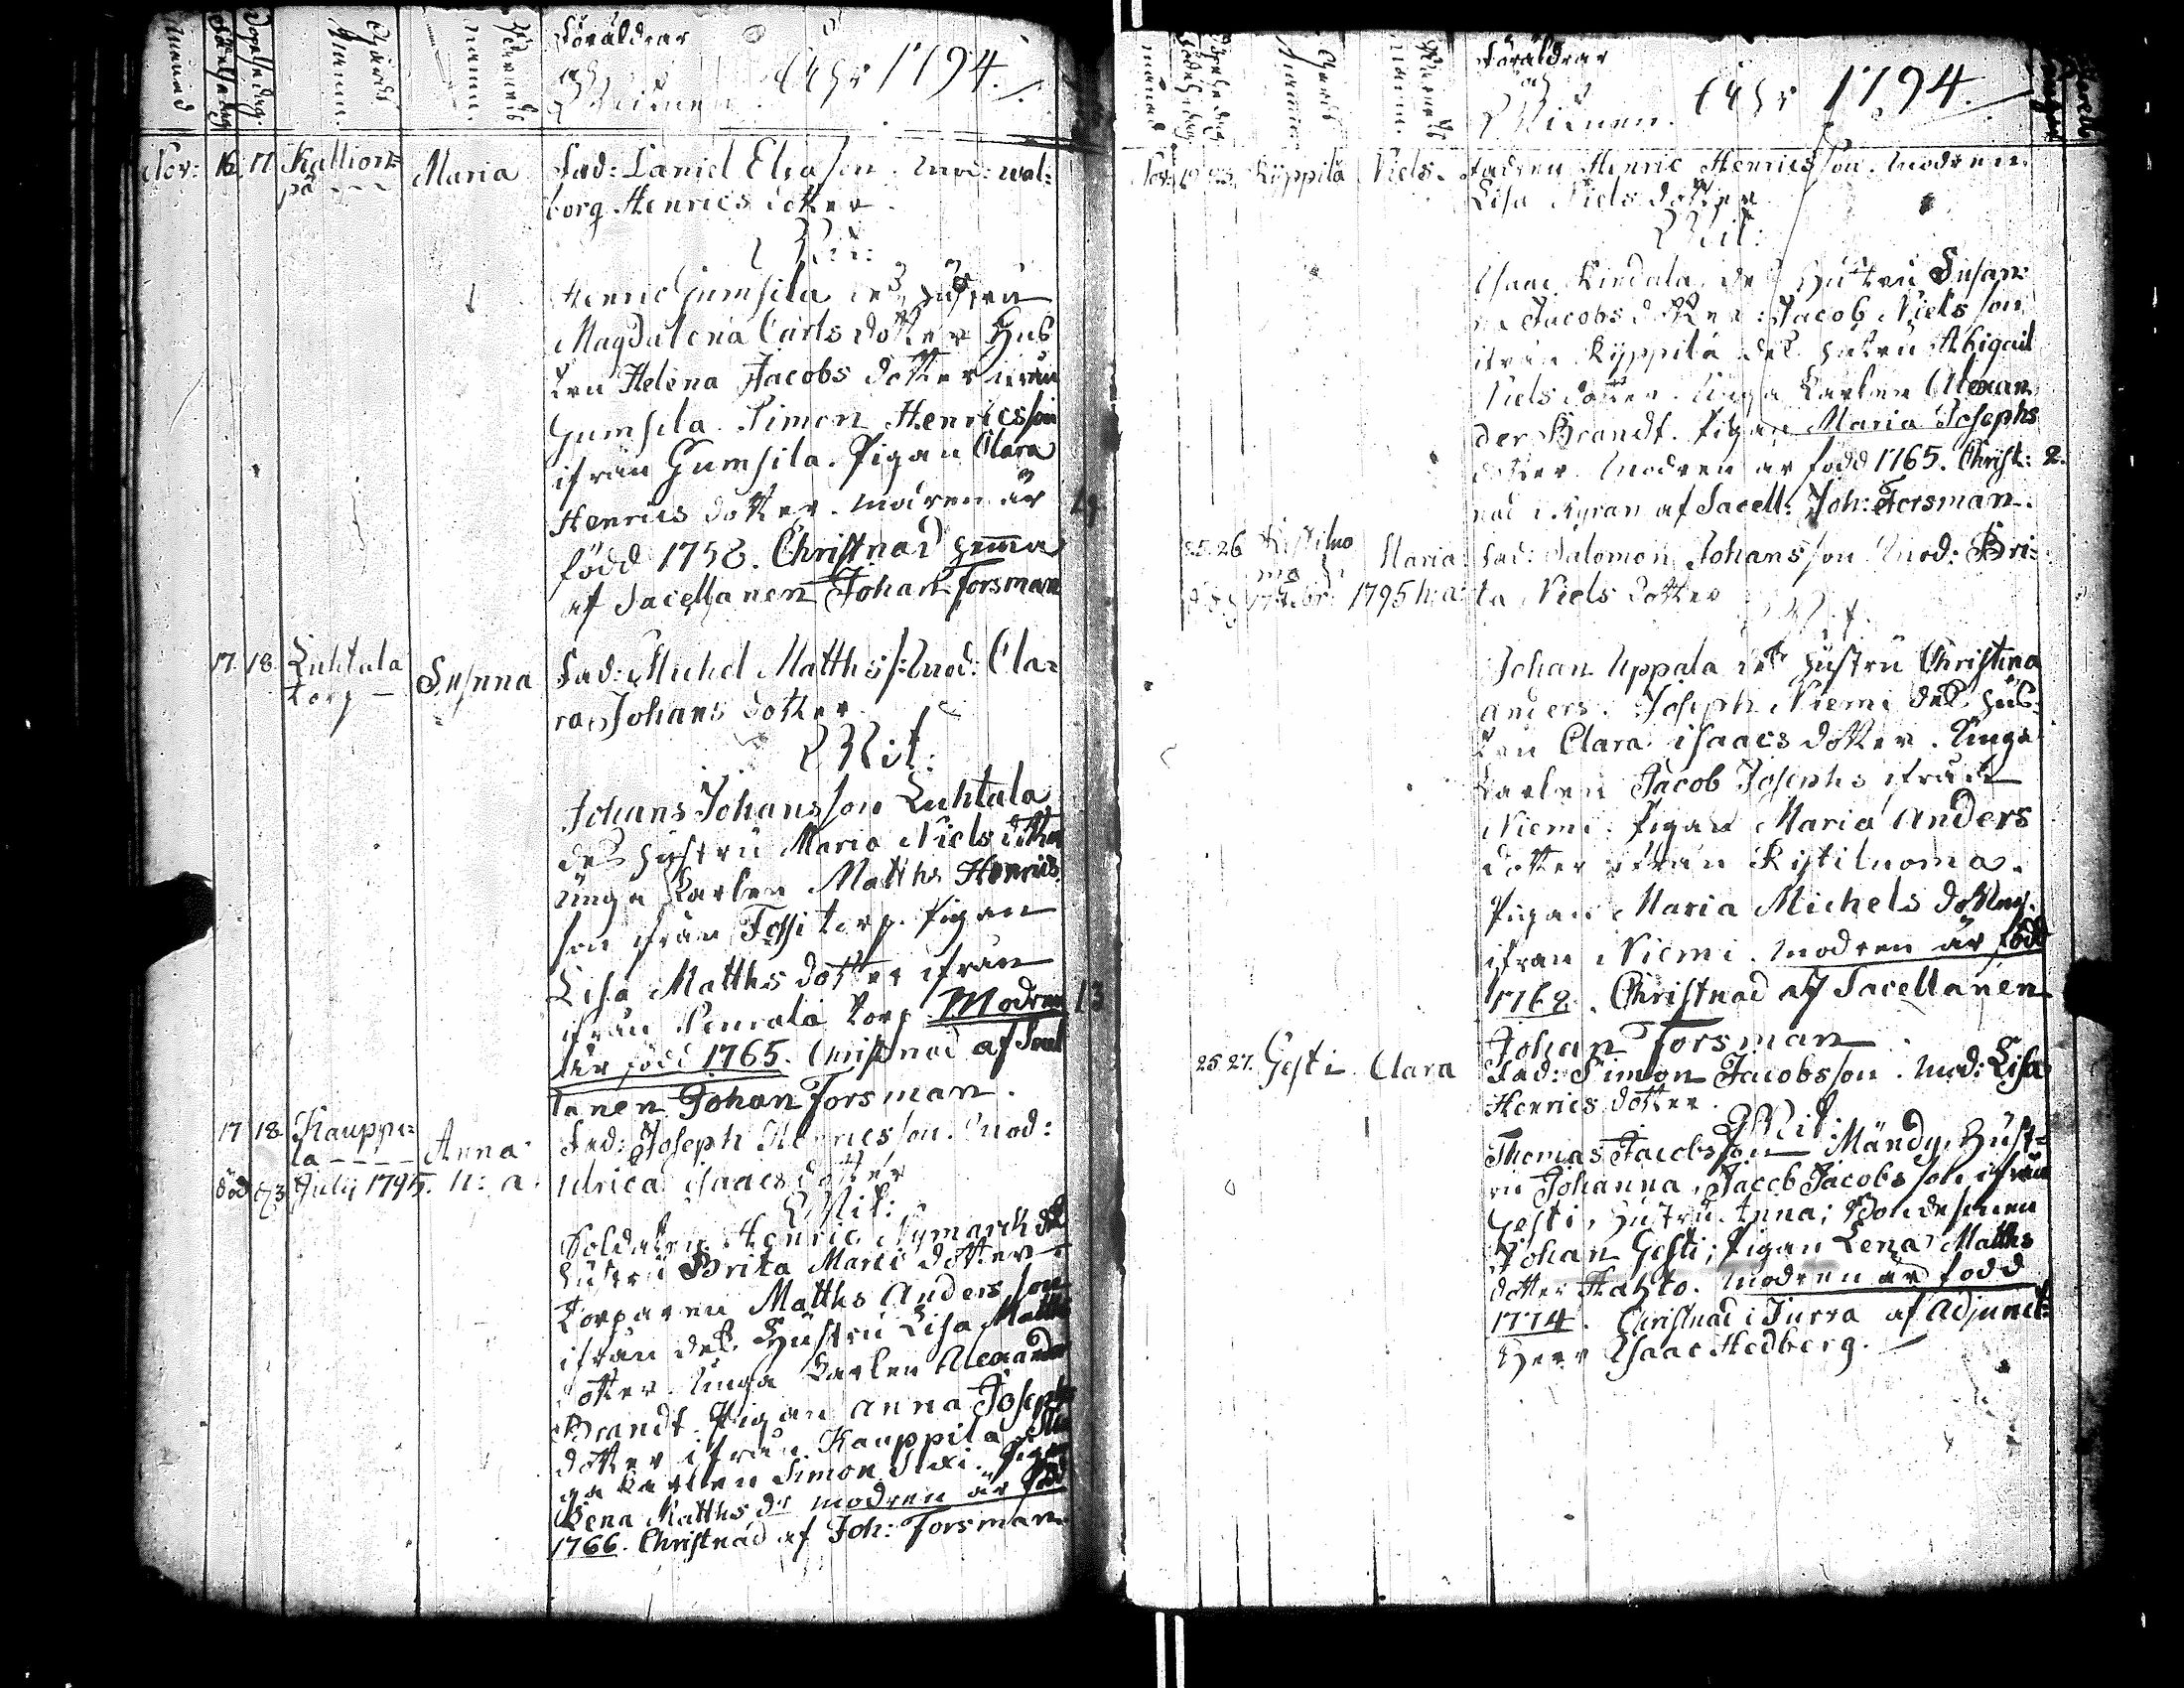 Månad
Födelsedag
Döpelsedag
Gårds
Namn.
Barnets
namn.
Föräldrar
och
Wittnen.
Åhr 1794.
Nov: 16. 17 Kallion=
pä - - -
Maria
Fad: Daniel Eliasson. Mod: wal:
borg Henrics dotter.
Wit:
Henric Gumsila des hustru
Magdalena Carls dotter Hus
tru Helena Jacobs dotter ifrån
Gumsila. Simon Henricsson
ifrån Gumsila. Pigan Clara
Henrics dotter. Modren är
född 1758. Christnad hemma
af Sacellanen Johan Forsman
4
17. 18. Luhtala
torp —
Susnna
Fad: Michel Matths s: Mod: Cla=
ra Johans dotter
Wit:
Johans Johansson Luhtala
des hustru Maria Niels dotter
unga Karlen Matths Henrics
son ifrån Fossi torp. Pigan
Lisa Matths dotter ifrån
ifrån torp. Modren
är född 1765. Christnad af Sacel
lanen Johan Forsman.
13
17 18 Kauppi=
la - - - -
Anna
död July 1795. h: a:
Fad: Joseph Henricsson. Mod:
Ulrica isaacs dotter
Wit:
Soldaten Henric Nymarck des
hustru Brita Marci dotter
Torparen Matths Anders son
ifrån des Hustru Lisa Matths
dotter. Unga Karlen Alexander
Brandt. Pigan Anna Josephs
dotter ifrån Kauppila. Un
ga Karlen Simon Sixi. Pigan
Lena Matths dr modren är född
1766. Christnad af Joh: Forsman.
Månad
Födelsedag
Döpelsedag
Gårds
Namn
Barnets
Namn.
Föräldrar
och
Wittnen.
Åhr 1794.
Nov: 19 23. Kyppilä Niels.
Fadren Henric Henricsson. Modren
Lisa Niels dotter
Wit:
Isaac Kindala, des Hustru Susan=
na Jacobs dotter: Jacob Nielsson
ifrån Kyppilä des hustru Abigail
Niels dotter. Unga Karlen Alexan
der Brandt. Pigan Maria Josephs
dotter. Modren är född 1765. Christ: 2.
nad i Kyran af Sacell: Joh: Forsman.
25. 26 Kistiluo
ma
Maria
död 1795 h: a:
Fad: Salomon Johansson Mod: Bri=
ta Niels dotter
Wit.
Johan Uppala des hustru Christina
Anders. Joseph Niemi des hus
tru Clara isaacs dotter. Unga
Karlen Jacob Josephs ifrån
Niemi. Pigan Maria Anders
dotter ifrån Kistiluoma.
Pigan Maria Michels dotter
ifran Niemi. modren är född
1768. Christnad af Sacellanen
Johan Forsman.
25. 27. Gesti Clara
Fad: Simon Jacobsson. Mod: Lisa
Henrics dotter.
Wit:
Thomas Jacobsson Mändy. Hust=
ru Johanna, Jacob Jacobsson ifrån
Gesti, hustru Anna; Bondesonen
Johan Gesti; Pigan Lena Matths
dotter Hahto. modren är född
1774. Christnad i Jurva af Adjunct:
Herr Isaac Hedberg.